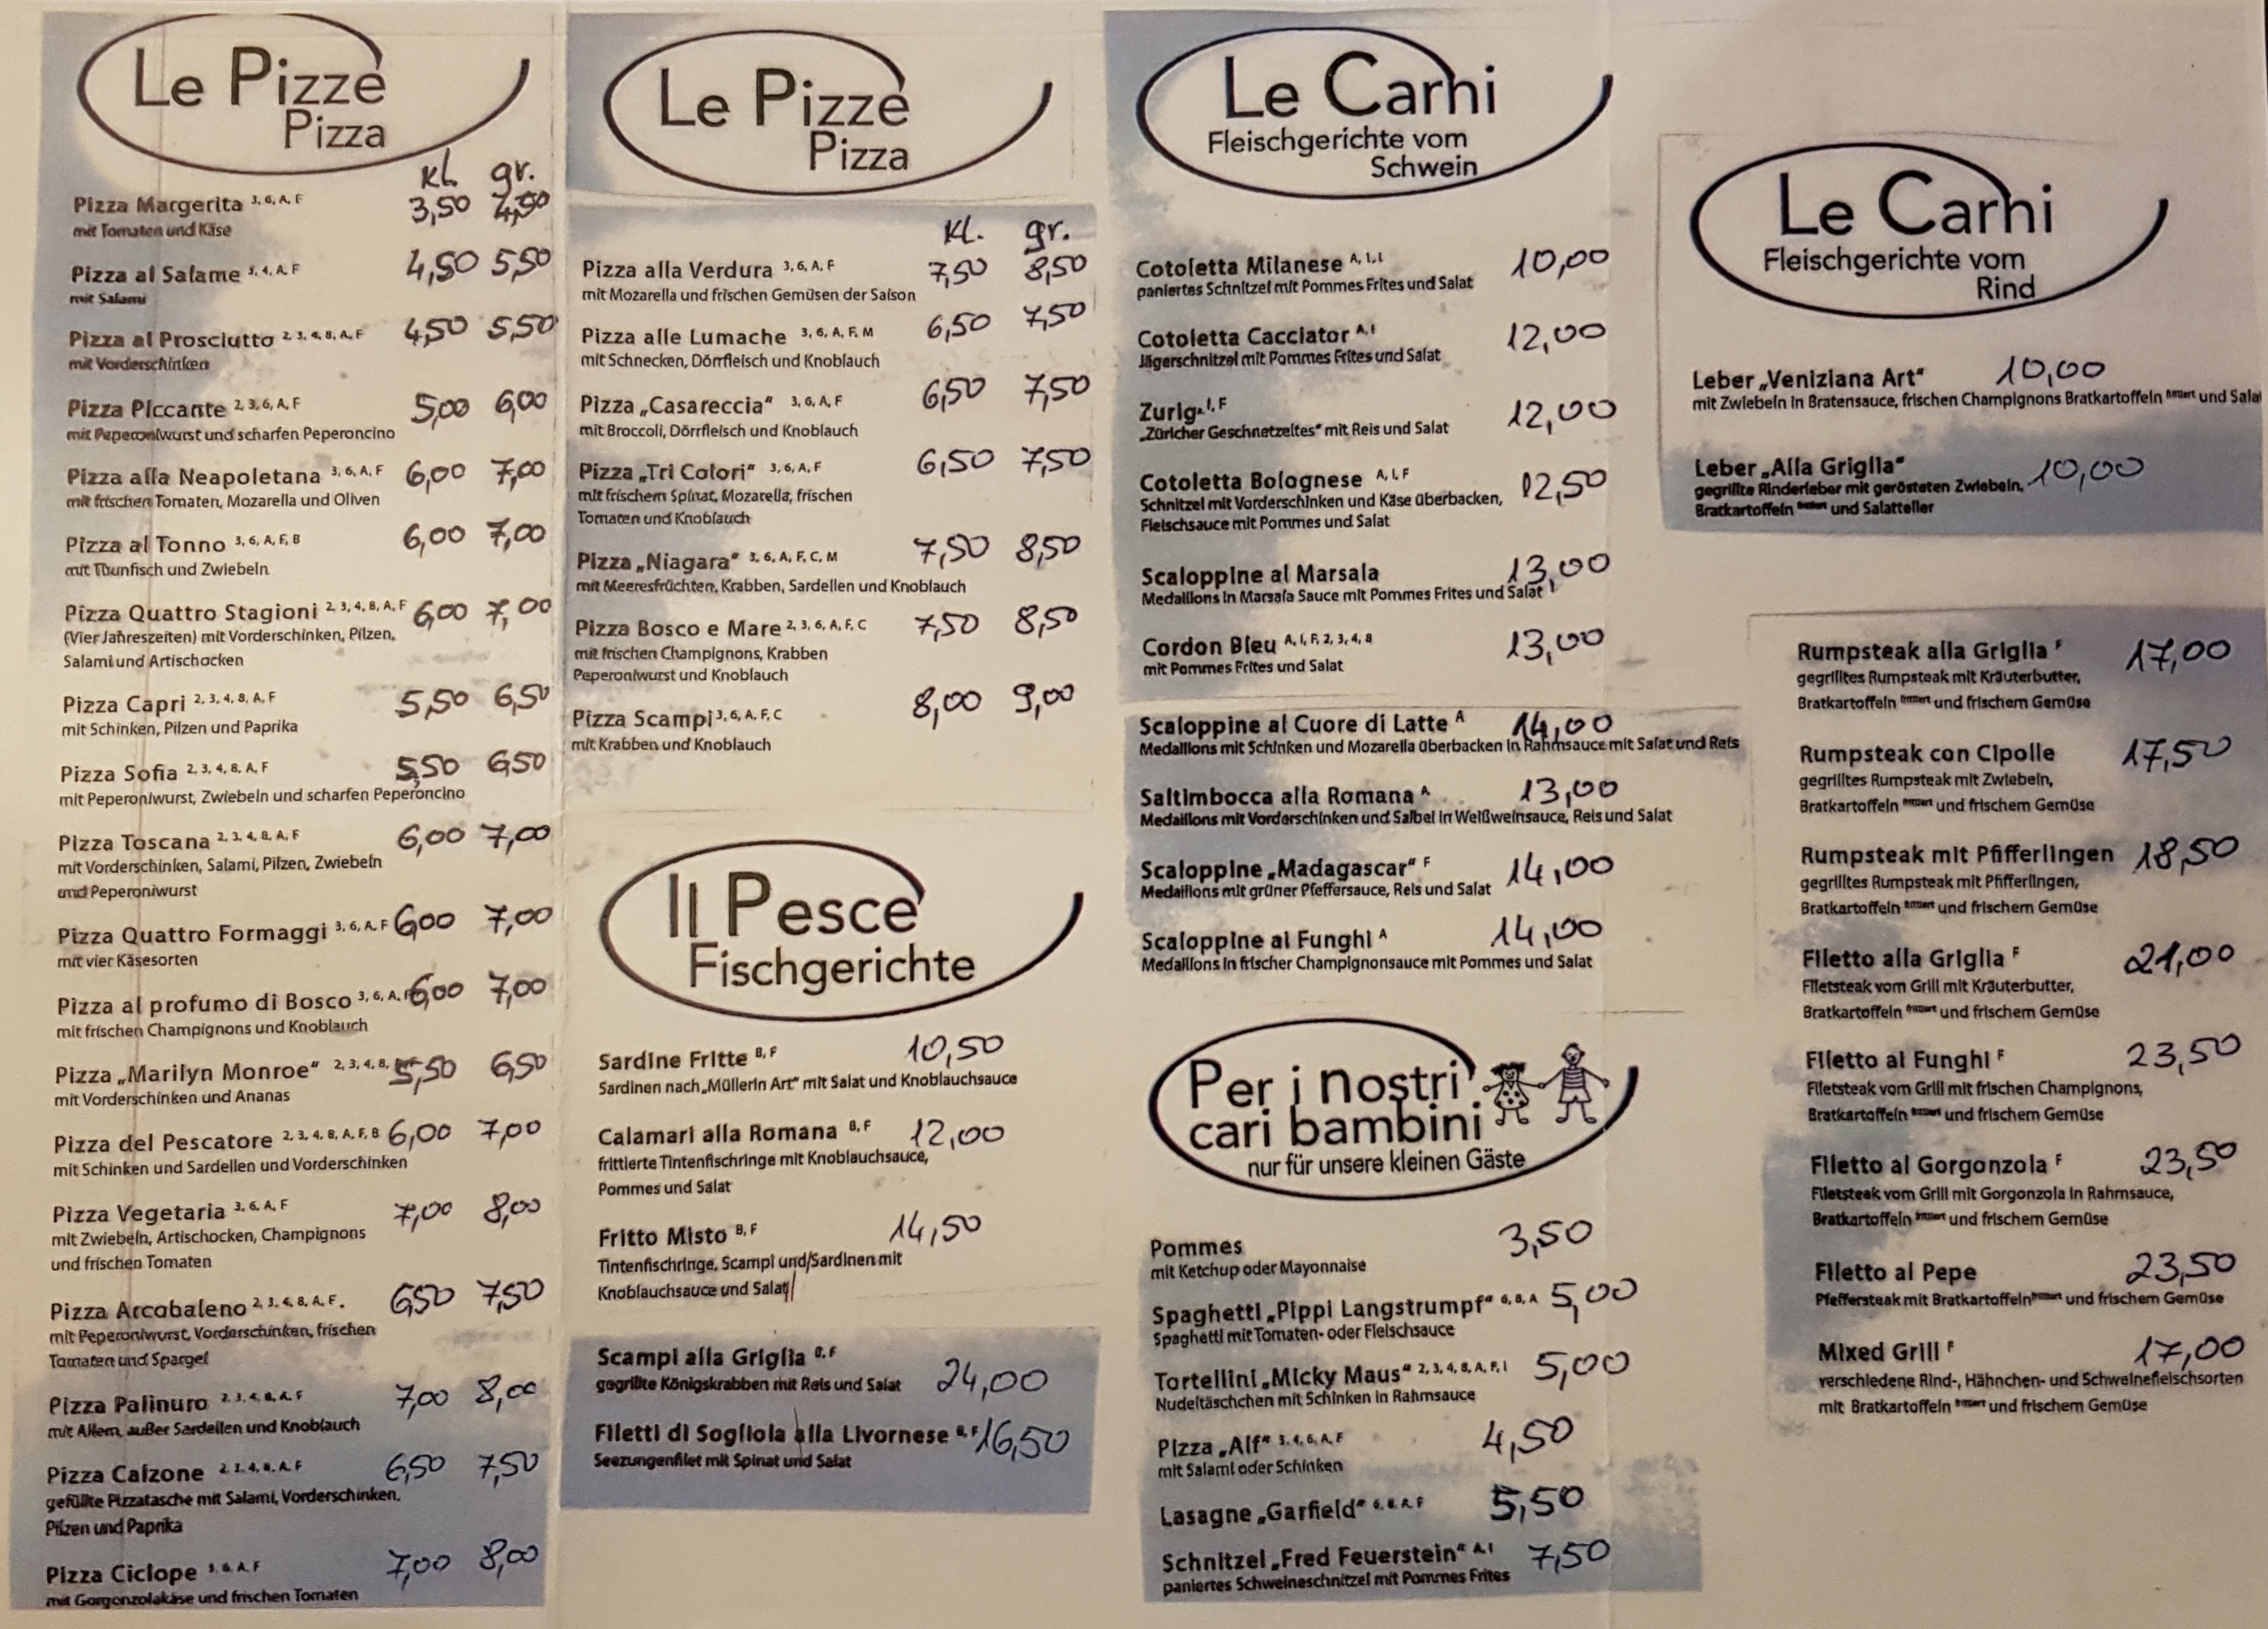 Le Pizze
Pizza
kl. gr.
Pizza Margerita 3, 6, A, F 3,50 4,50
mit Tomaten und Käse
Pizza al Salame 3, 4, A, F 4,50 5,50
mit Salami
Pizza al Prosciutto 2, 3, 4, 8, A, F 4,50 5,50
mit Vorderschinken
Pizza Piccante 2, 3, 6, A, F 5,00 6,00
mit Peperoniwurst und scharfen Peperoncino
Pizza alla Neapoletana 3, 6, A, F 6,00 7,00
mit frischen Tomaten, Mozarella und Oliven
Pizza al Tonno 3, 6, A, F, B 6,00 7,00
mit Thunfisch und Zwiebeln
Pizza Quattro Stagioni 2, 3, 4, 8, A, F 6,00 7,00
(Vier Jahreszeiten) mit Vorderschinken, Pilzen,
Salami und Artischocken
Pizza Capri 2, 3, 4, 8, A, F 5,50 6,50
mit Schinken, Pilzen und Paprika
Pizza Sofia 2, 3, 4, 8, A, F 5,50 6,50
mit Peperoniwurst, Zwiebeln und scharfen Peperoncino
Pizza Toscana 2, 3, 4, 8, A, F 6,00 7,00
mit Vorderschinken, Salami, Pilzen, Zwiebeln
und Peperoniwurst
Pizza Quattro Formaggi 3, 6, A, F 6,00 7,00
mit vier Käsesorten
Pizza al profumo di Bosco 3, 6, A, F 6,00 7,00
mit frischen Champignons und Knoblauch
Pizza „Marilyn Monroe“ 2, 3, 4, 8, 5,50 6,50
mit Vorderschinken und Ananas
Pizza del Pescatore 2, 3, 4, 8, A, F, B 6,00 7,00
mit Schinken und Sardellen und Vorderschinken
Pizza Vegetaria 3, 6, A, F 7,00 8,00
mit Zwiebeln, Artischocken, Champignons
und frischen Tomaten
Pizza Arcobaleno 2, 3, 4, 8, A, F 6,50 7,50
mit Peperoniwurst, Vorderschinken, frischen
Tomaten und Spargel
Pizza Palinuro 2, 3, 4, 8, A, F 7,00 8,00
mit Allem, außer Sardellen und Knoblauch
Pizza Calzone 2, 3, 4, 8, A, F 6,50 7,50
gefüllte Pizzatasche mit Salami, Vorderschinken,
Pilzen und Paprika
Pizza Ciclope 3, 6, A, F 7,00 8,00
mit Gorgonzolakäse und frischen Tomaten
Le Pizze
Pizza
kl. gr.
Pizza alla Verdura 3, 6, A, F 7,50 8,50
mit Mozarella und frischen Gemüsen der Saison
Pizza alle Lumache 3, 6, A, F, M 6,50 7,50
mit Schnecken, Dörrfleisch und Knoblauch
Pizza „Casareccia“ 3, 6, A, F 6,50 7,50
mit Broccoli, Dörrfleisch und Knoblauch
Pizza „Tri Colori“ 3, 6, A, F 6,50 7,50
mit frischem Spinat, Mozarella, frischen
Tomaten und Knoblauch
Pizza „Niagara“ 3, 6, A, F, C, M 7,50 8,50
mit Meeresfrüchten, Krabben, Sardellen und Knoblauch
Pizza Bosco e Mare 2, 3, 6, A, F, C 7,50 8,50
mit frischen Champignons, Krabben
Peperoniwurst und Knoblauch
Pizza Scampi 3, 6, A, F, C 8,00 9,00
mit Krabben und Knoblauch
Il Pesce
Fischgerichte
Sardine Fritte B, F 10,50
Sardinen nach „Müllerin Art“ mit Salat und Knoblauchsauce
Calamari alla Romana B, F 12,00
frittierte Tintenfischringe mit Knoblauchsauce,
Pommes und Salat
Fritto Misto B, F 14,50
Tintenfischringe, Scampi und/Sardinen mit
Knoblauchsauce und Salat
Scampi alla Griglia B, F 24,00
gegrillte Königskrabben mit Reis und Salat
Filetti di Sogliola alla Livornese B, F 16,50
Seezungenfilet mit Spinat und Salat
Le Carni
Fleischgerichte vom
Schwein
Cotoletta Milanese A, I, L 10,00
paniertes Schnitzel mit Pommes Frites und Salat
Cotoletta Cacciator A, I 12,00
Jägerschnitzel mit Pommes Frites und Salat
Zurig A, I, F 12,00
„Züricher Geschnetzeltes“ mit Reis und Salat
Cotoletta Bolognese A, I, F 12,50
Schnitzel mit Vorderschinken und Käse überbacken,
Fleischsauce mit Pommes und Salat
Scaloppine al Marsala 13,00
Medaillons in Marsala Sauce mit Pommes Frites und Salat I
Cordon Bleu A, I, F, 2, 3, 4, 8 13,00
mit Pommes Frites und Salat
Scaloppine al Cuore di Latte A 14,00
Medaillons mit Schinken und Mozarella überbacken in Rahmsauce mit Salat und Reis
Saltimbocca alla Romana A 13,00
Medaillons mit Vorderschinken und Salbei in Weißweinsauce, Reis und Salat
Scaloppine „Madagascar“ F 14,00
Medaillons mit grüner Pfeffersauce, Reis und Salat
Scaloppine ai Funghi A 14,00
Medaillons in frischer Champignonsauce mit Pommes und Salat
Per i nostri
cari bambini
nur für unsere kleinen Gäste
Pommes 3,50
mit Ketchup oder Mayonnaise
Spaghetti „Pippi Langstrumpf“ 6, 8, A 5,00
Spaghetti mit Tomaten- oder Fleischsauce
Tortellini „Micky Maus“ 2, 3, 4, 8, A, F, I 5,00
Nudeltäschchen mit Schinken in Rahmsauce
Pizza „Alf“ 3, 4, 6, A, F 4,50
mit Salami oder Schinken
Lasagne „Garfield“ 6, 8, A, F 5,50
Schnitzel „Fred Feuerstein“ A, I 7,50
paniertes Schweineschnitzel mit Pommes Frites
Le Carni
Fleischgerichte vom
Rind
Leber „Veniziana Art“ 10,00
mit Zwiebeln in Bratensauce, frischen Champignons Bratkartoffeln frittiert und Sala
Leber „Alla Griglia“ 10,00
gegrillte Rinderleber mit gerösteten Zwiebeln,
Bratkartoffeln frittiert und Salatteller
Rumpsteak alla Griglia F 17,00
gegrilltes Rumpsteak mit Kräuterbutter,
Bratkartoffeln frittiert und frischem Gemüse
Rumpsteak con Cipolle 17,50
gegrilltes Rumpsteak mit Zwiebeln,
Bratkartoffeln frittiert und frischem Gemüse
Rumpsteak mit Pfifferlingen 18,50
gegrilltes Rumpsteak mit Pfifferlingen,
Bratkartoffeln frittiert und frischem Gemüse
Filetto alla Griglia F 21,00
Filetsteak vom Grill mit Kräuterbutter,
Bratkartoffeln frittiert und frischem Gemüse
Filetto ai Funghi F 23,50
Filetsteak vom Grill mit frischen Champignons,
Bratkartoffeln frittiert und frischem Gemüse
Filetto al Gorgonzola F 23,50
Filetsteak vom Grill mit Gorgonzola in Rahmsauce,
Bratkartoffeln frittiert und frischem Gemüse
Filetto al Pepe 23,50
Pfeffersteak mit Bratkartoffeln frittiert und frischem Gemüse
Mixed Grill F 17,00
verschiedene Rind-, Hähnchen- und Schweinefleischsorten
mit Bratkartoffeln frittiert und frischem Gemüse